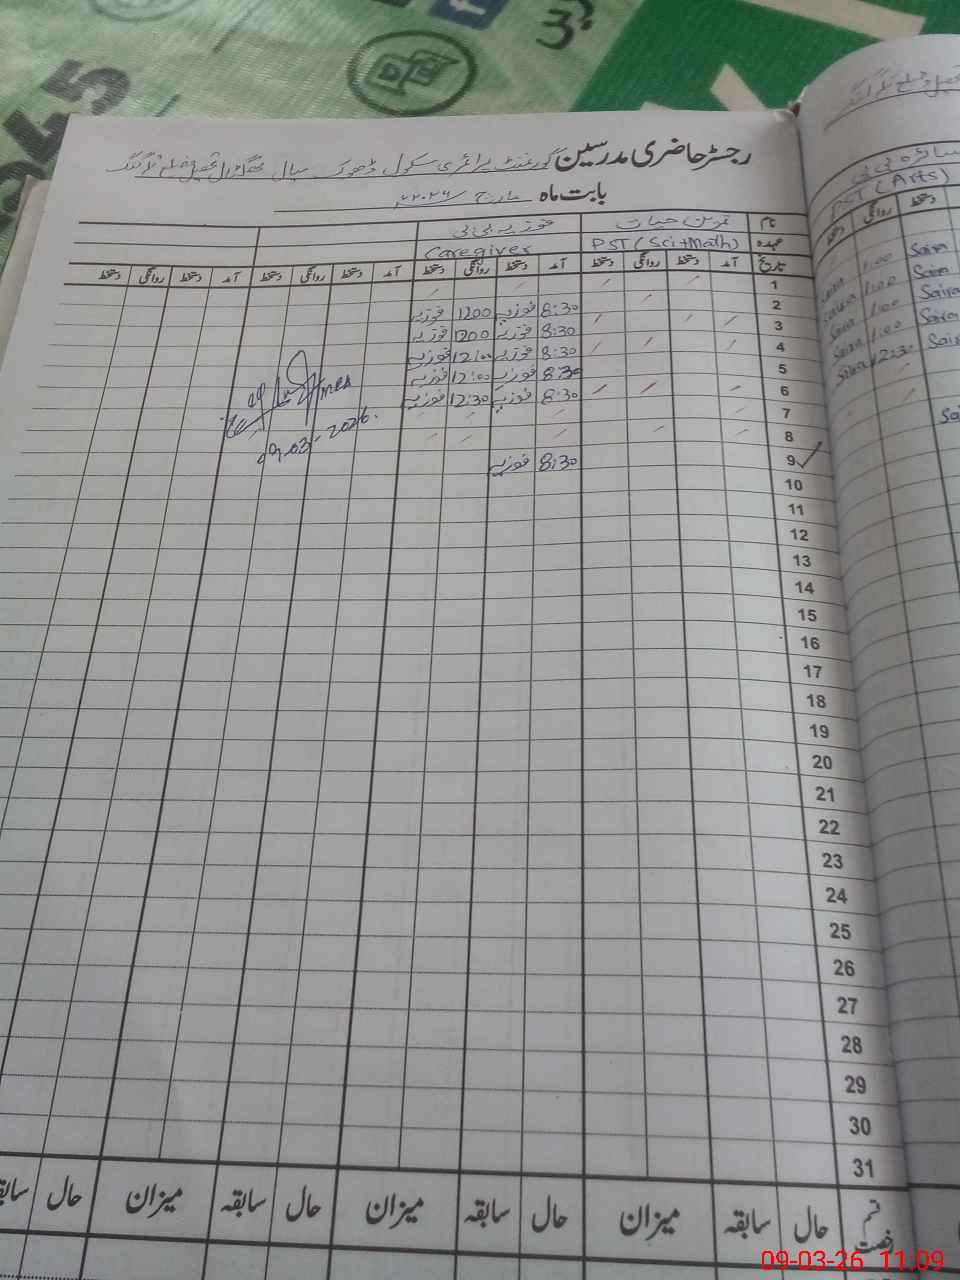 045
رجسٹر حاضری مدرسین گورنمنٹ پرائمری سکول ڈھوک سیال
بابت ماہ مارچ
نام
فوزیہ بی بی
عہدہ PST (Sci+Math) Caregiver
تاریخ آمد دستخط روانگی دستخط آمد دستخط روانگی دستخط آمد دستخط روانگی دستخط آمد دستخط روانگی دستخط
1
2 8:30 فوزیہ 1200 فوزیہ
3 8:30 فوزیہ 1200 فوزیہ
4 8:30 فوزیہ 12:00 فوزیہ
5 8:30 فوزیہ 12:00 فوزیہ
6 8:30 فوزیہ 12:30 فوزیہ
7
8
9 8:30 فوزیہ
09-03-2026.
10
11
12
13
14
15
16
17
18
19
20
21
22
23
24
25
26
27
28
29
30
31
حال سابقہ میزان حال سابقہ میزان حال سابقہ میزان حال
سائرہ بی بی
PST (Arts)
دستخط روانگی دستخط
Saira 1:00 Saira
Saira 1:00 Saira
Saira 1:00 Saira
Saira 1:00 Saira
Saira 12:30
09-03-26 11:09